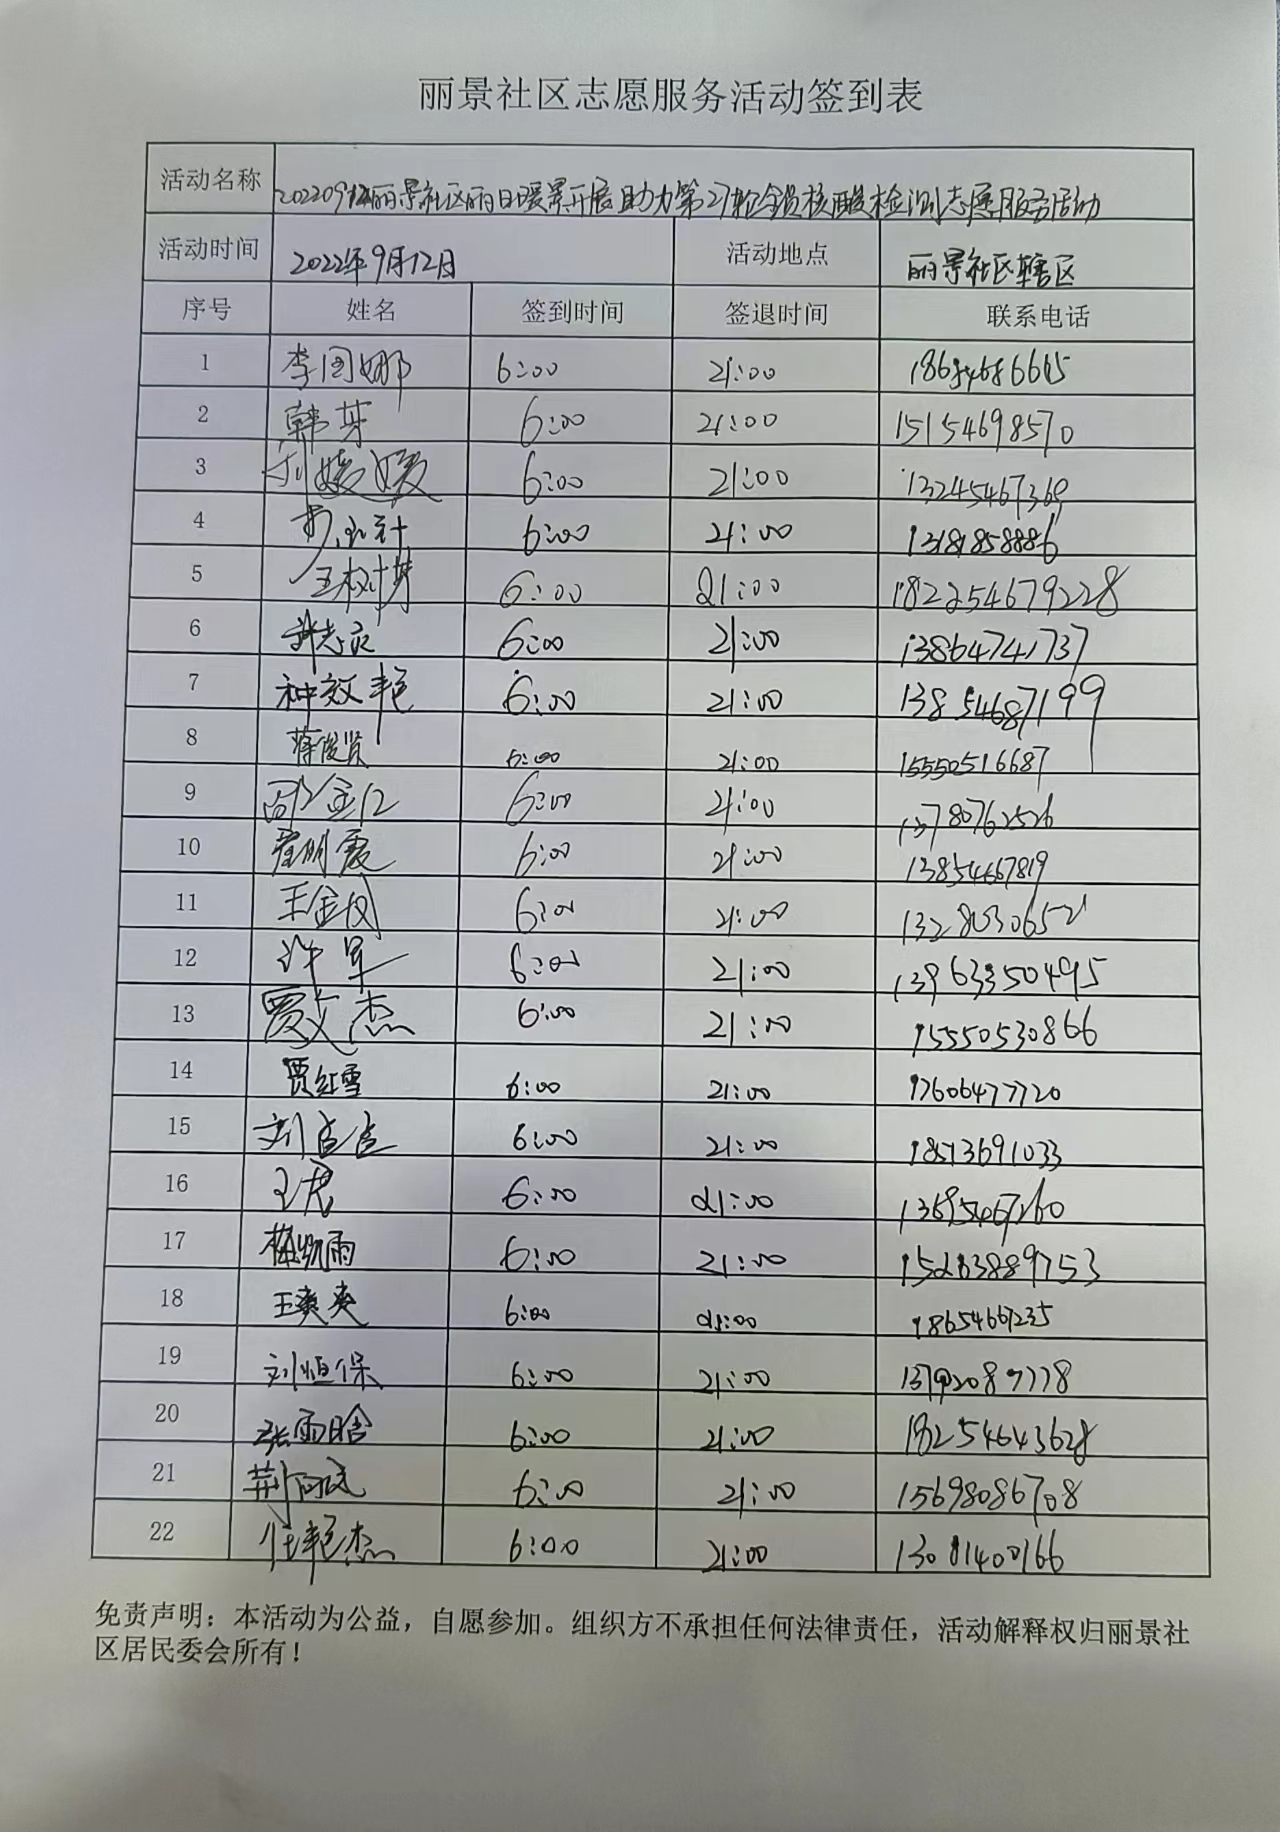 丽景社区志愿服务活动签到表
活动名称 20220912丽景社区丽日暖景开展助力第27轮全员核酸检测志愿服务活动
活动时间 2022年9月12日 活动地点 丽景社区辖区
序号 姓名 签到时间 签退时间 联系电话
1 李国娜 6:00 21:00
2 韩芽 6:00 21:00 15154698570
3 刘媛媛 6:00 21:00 13245467369
4 6:00 21:00 13181858886
5 王树芳 6:00 21:00 182254679228
6 6:00 21:00 13864741737
7 种效艳 6:00 21:00 13854687199
8 蒋俊贤 6:00 21:00 15550516687
9 6:00 21:00 13780762526
10 崔明霞 6:00 21:00 13854667819
11 王金凤 6:00 21:00
12 许军 6:00 21:00 13963350495
13 贾文杰 6:00 21:00 15550530866
14 贾红雪 6:00 21:00 17606477720
15 刘 6:00 21:00
16 王虎 6:00 21:00
17 雨 6:00 21:00
18 王爽爽 6:00 21:00 18654667235
19 刘恒保 6:00 21:00
20 张雨晗 6:00 21:00 18254643628
21 6:00 21:00 15698086708
22 任艳杰 6:00 21:00 13081400166
免责声明：本活动为公益，自愿参加。组织方不承担任何法律责任，活动解释权归丽景社
区居民委会所有！